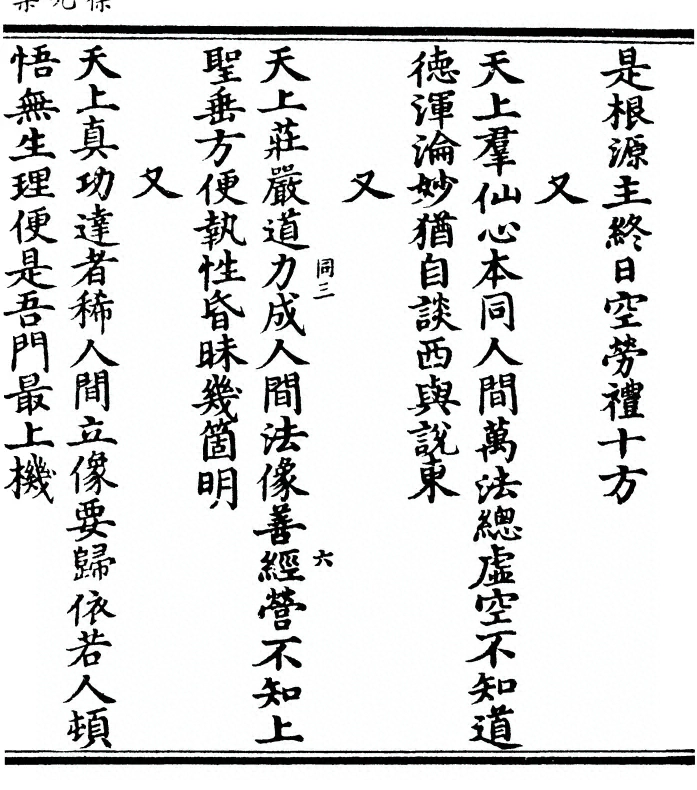 是根源主終日空勞禮十方
又
天上羣仙心本同人間萬法總虛空不知道
德渾淪妙猶自談西與說東
又
同三
六
天上莊嚴道力成人間法像善經營不知上
聖垂方便執性昏昧幾箇明
又
天上真功達者稀人間立像要歸依若人頓
悟無生理便是吾門最上機